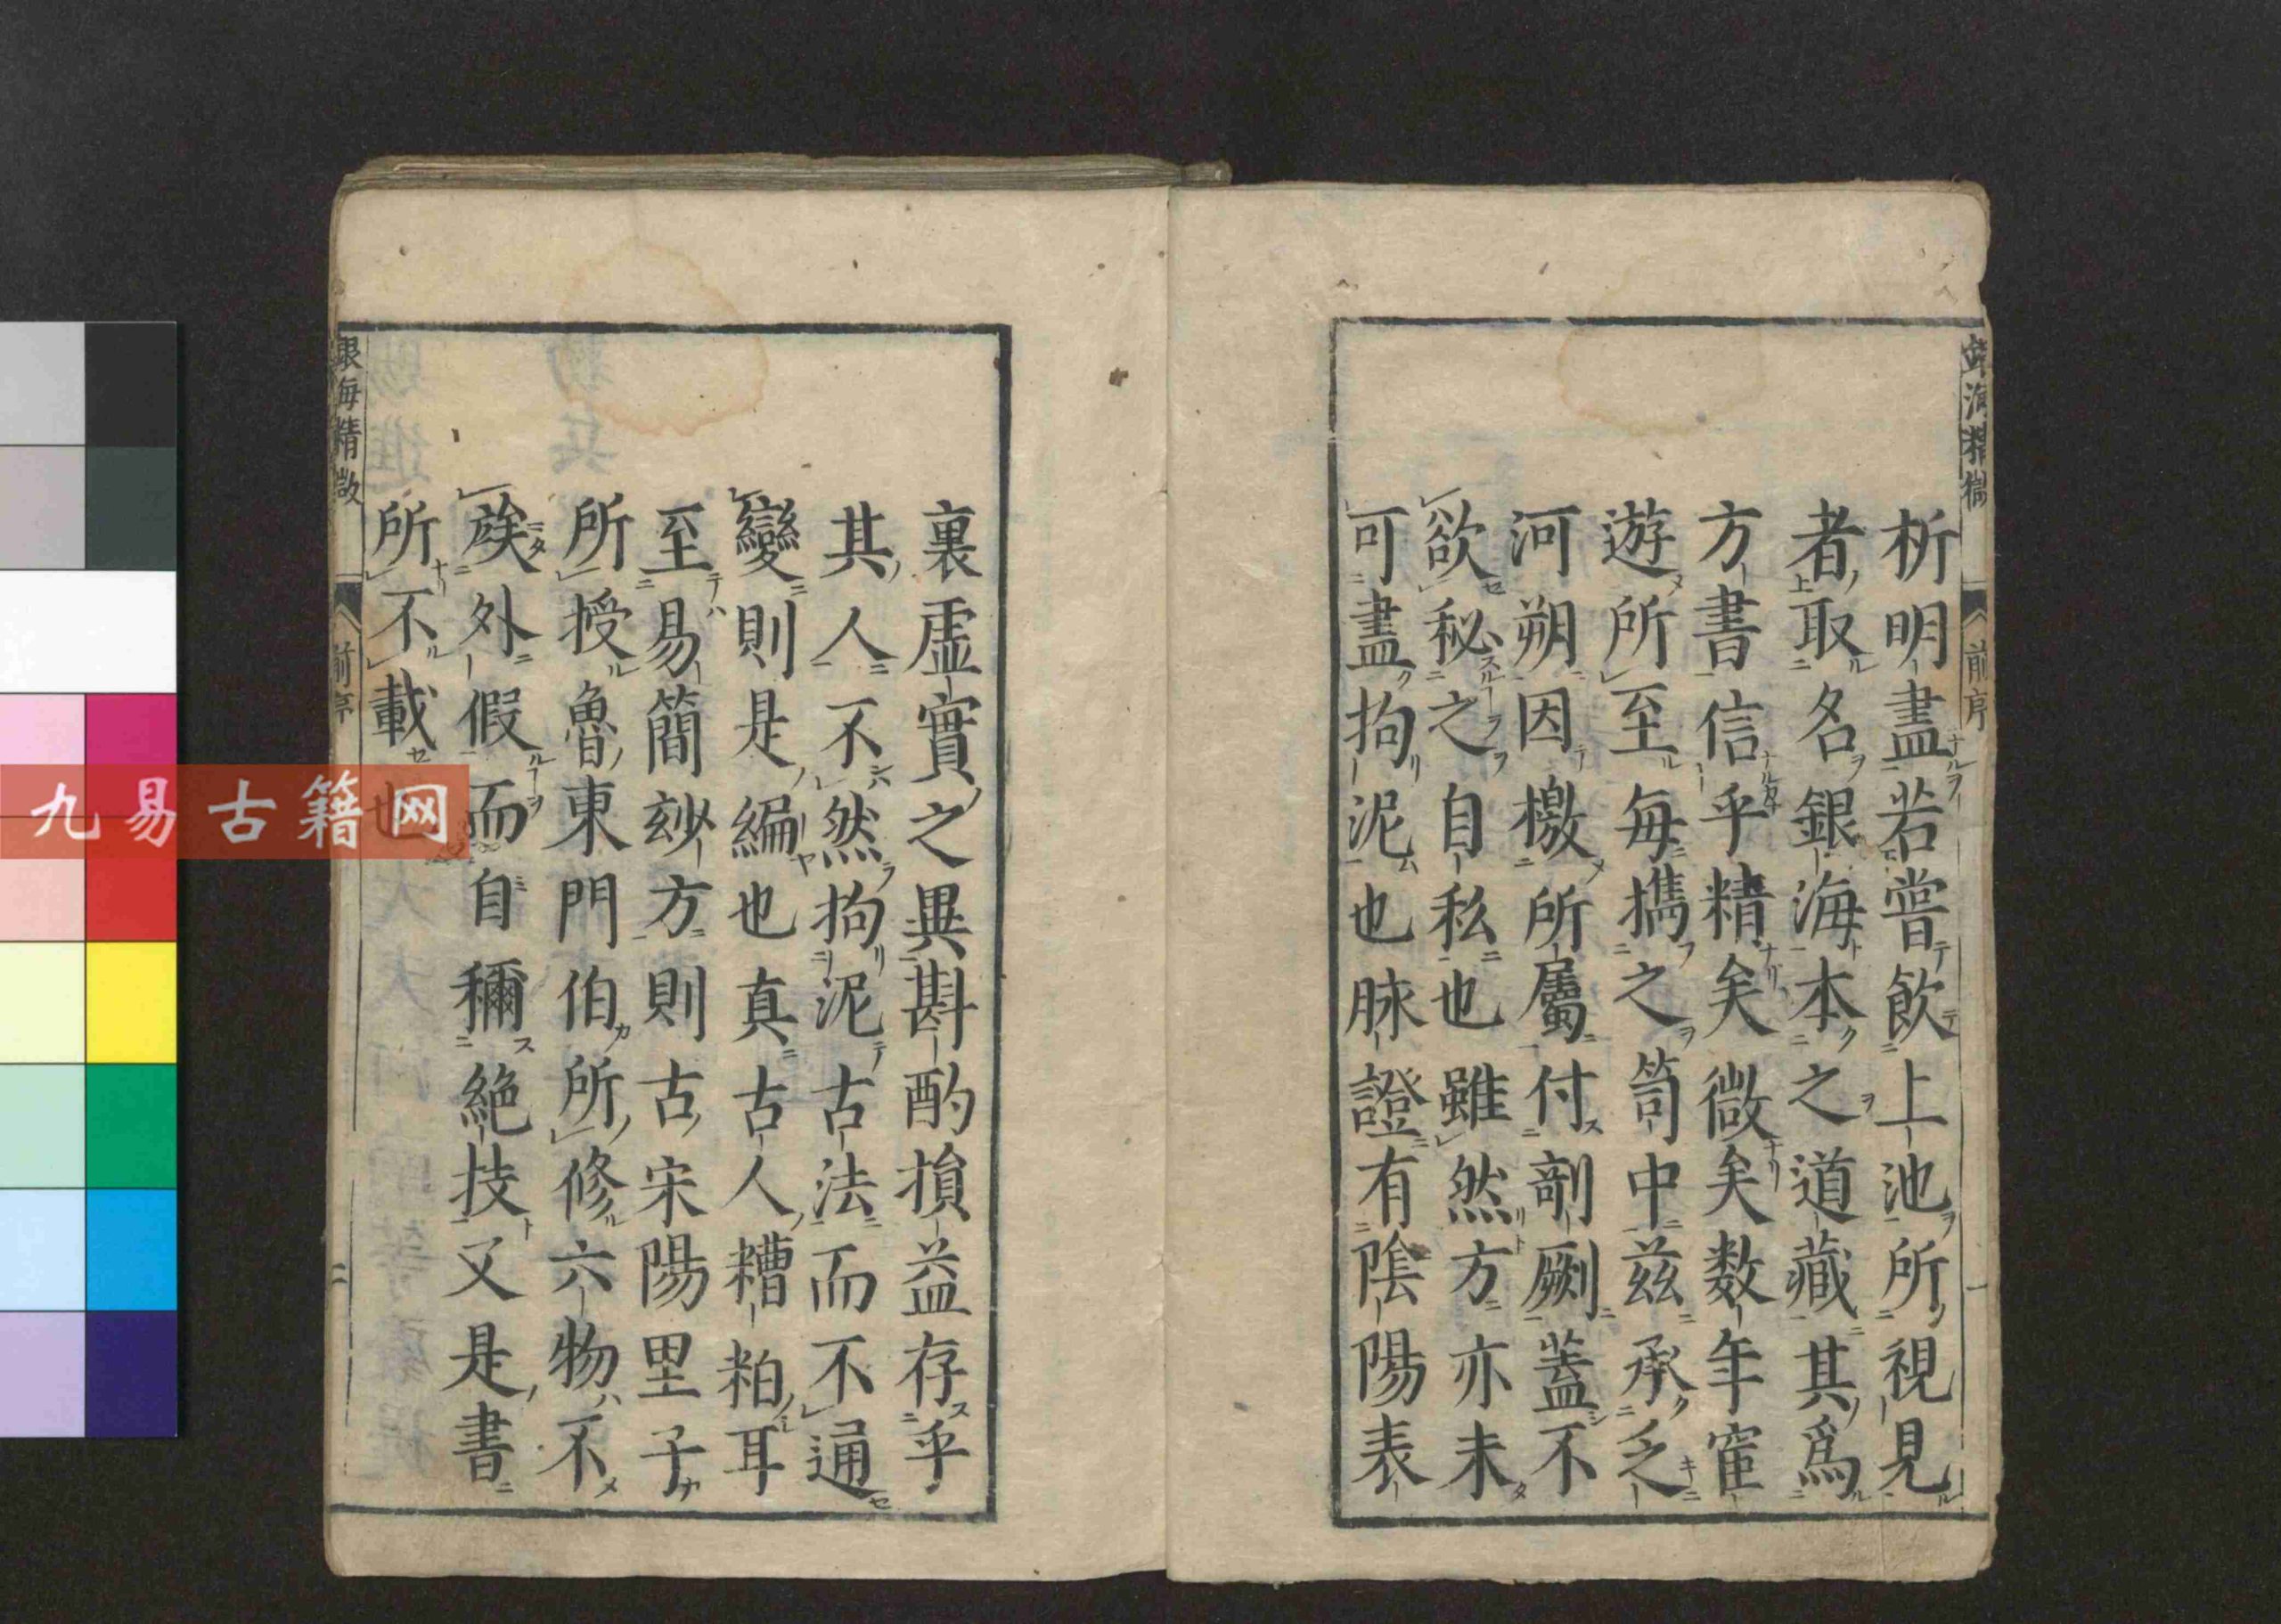 析明盡若嘗飲上池所視見
者取名銀海本之道藏其爲
方書信乎精矣微矣数年宦
遊所至每攜之笥中兹承乏
河朔因檄所屬付剞劂蓋不
欲秘之自私也雖然方亦未
可盡拘泥也脉證有陰陽表
裏虛實之異斟酌損益存乎
其人不然拘泥古法而不通
變則是編也真古人糟粕耳
至易簡玅方則古宋陽里子
所授魯東門伯所修六物不
族外假而自稱絶技又是書
所不載也
銀海精微
前序
一
銀海精微
前序
二
九易古籍网